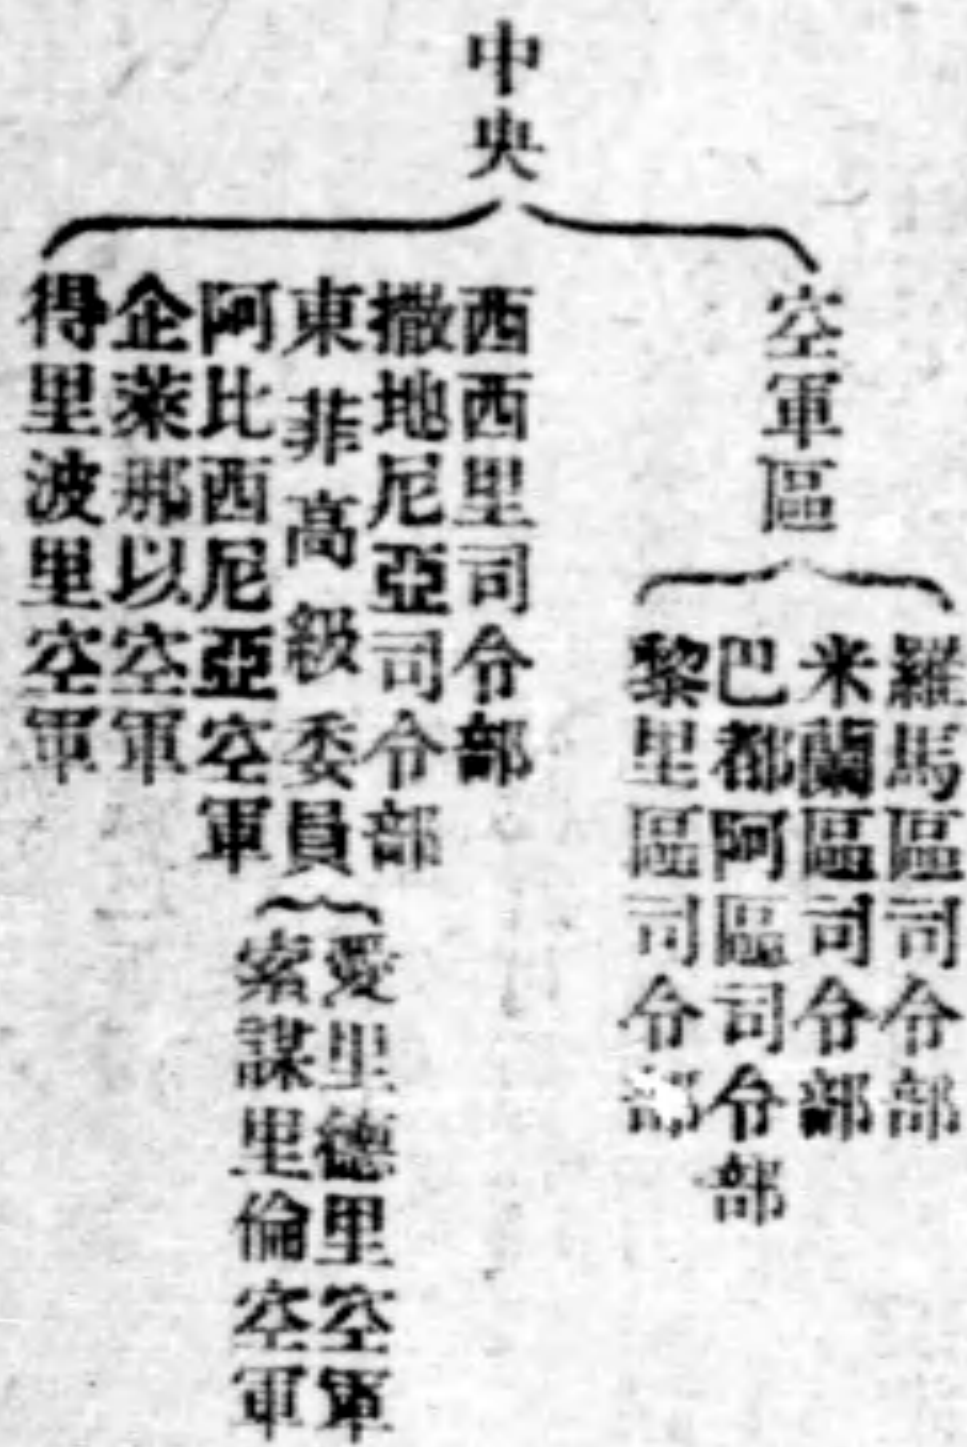 中央
空軍區
羅馬區司令部
米蘭區司令部
巴都阿區司令部
黎里區司令部
西西里司令部
撒地尼亞司令部
東菲高級委員
愛里德里空軍
索謀里倫空軍
阿比西尼亞空軍
企萊那以空軍
得里波里空軍